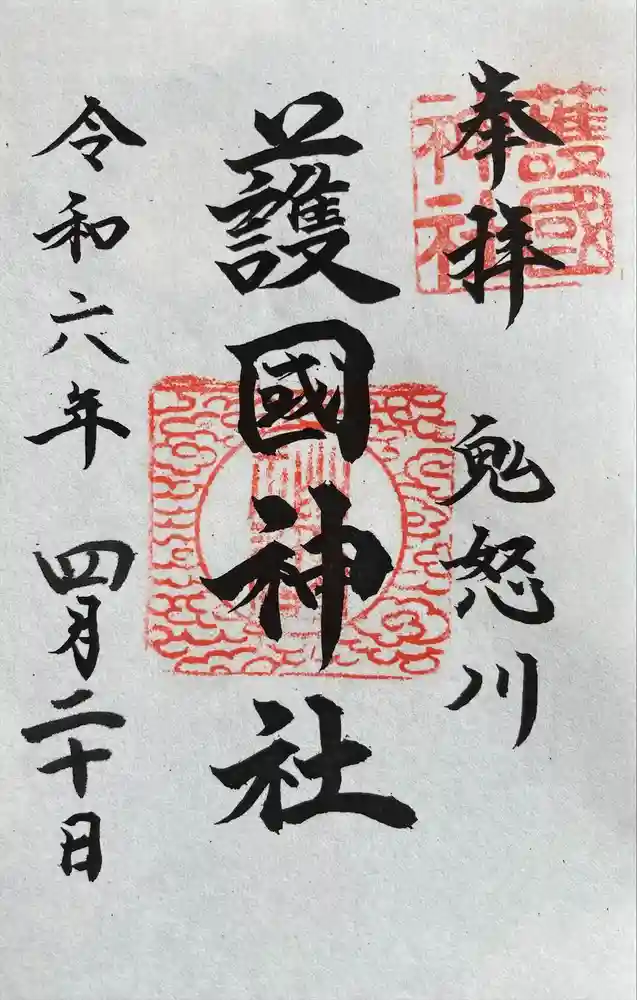 奉拝
鬼怒川
護國神社
令和六年
四月二十日
護國
神社